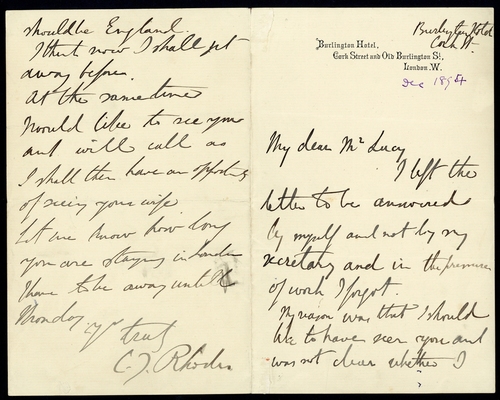 Burlington Hotel
Cork St.
Burlington Hotel,
Cork Street and Old Burlington St.,
London, W.
Dec 1894
My dear Mr Lucy
I left the
letter to be answered
by myself and not by my
secretary and in the pressure
of work I forgot.
My reason was that I should
like to have seen you and
was not clear whether I
should be England.
I think now I shall get
away before.
At the same time
I would like to see you
and will call as
I shall then have an opportunity
of seeing your wife
Let me know how long
you are staying in London
I have to be away until
Monday
yrs truly
C. J. Rhodes